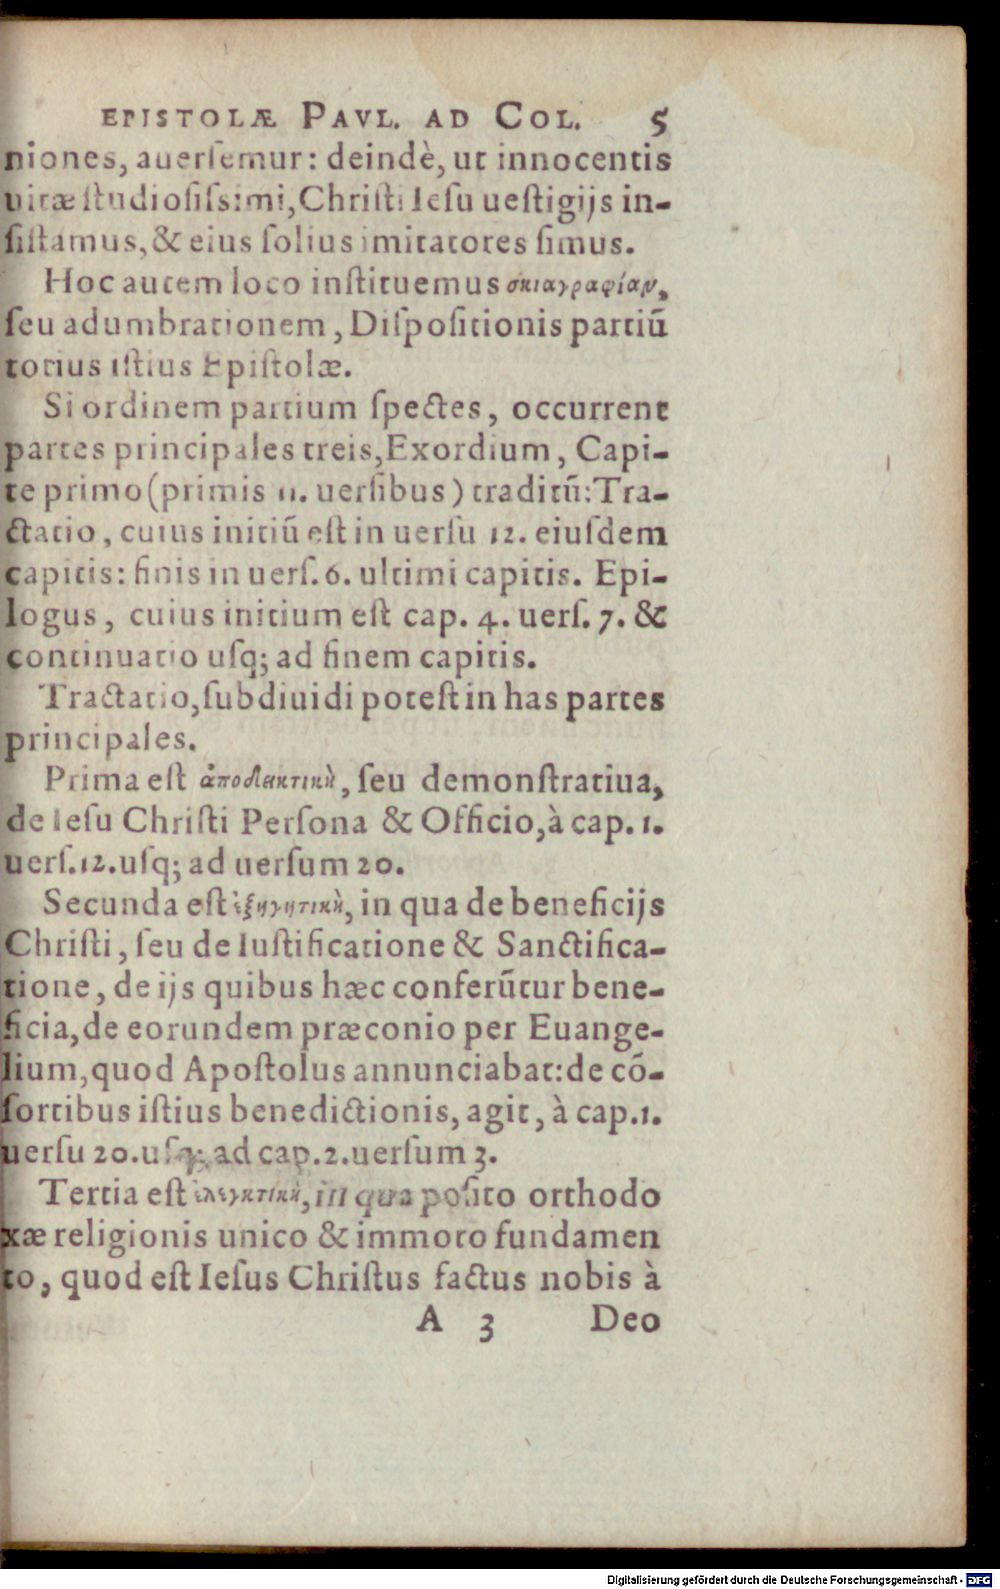 EPISTOLÆ PAVL. AD COL. 5
niones, auerſemur: deindè, ut innocentis
uitæ ſtudioſiſsimi, Chriſti Ieſu ueſtigijs in-
ſiſtamus, & eius ſolius imitatores ſimus.
Hoc autem loco inſtituemus σκιαγραφίαν,
ſeu adumbrationem, Diſpoſitionis partiū
totius iſtius Epiſtolæ.
Si ordinem partium ſpectes, occurrent
partes principales treis, Exordium, Capi-
te primo (primis 11. uerſibus) traditū: Tra-
ctatio, cuius initiū eſt in uerſu 12. eiuſdem
capitis: finis in uerſ. 6. ultimi capitis. Epi-
logus, cuius initium eſt cap. 4. uerſ. 7. &
continuatio uſq; ad finem capitis.
Tractatio, ſubdiuidi poteſt in has partes
principales.
Prima eſt ἀποδεικτικὴ, ſeu demonſtratiua,
de Ieſu Chriſti Perſona & Officio, à cap. 1.
uerſ. 12. uſq; ad uerſum 20.
Secunda eſt ἐξηγητικὴ, in qua de beneficijs
Chriſti, ſeu de Iuſtificatione & Sanctifica-
tione, de ijs quibus hæc conferūtur bene-
ficia, de eorundem præconio per Euange-
lium, quod Apoſtolus annunciabat: de cō-
ſortibus iſtius benedictionis, agit, à cap. 1.
uerſu 20. uſq; ad cap. 2. uerſum 3.
Tertia eſt ἐλεγκτικὴ, in qua poſito orthodo
xæ religionis unico & immoto fundamen
to, quod eſt Ieſus Chriſtus factus nobis à
A 3 Deo
Digitalisierung gefördert durch die Deutsche Forschungsgemeinschaft - DFG